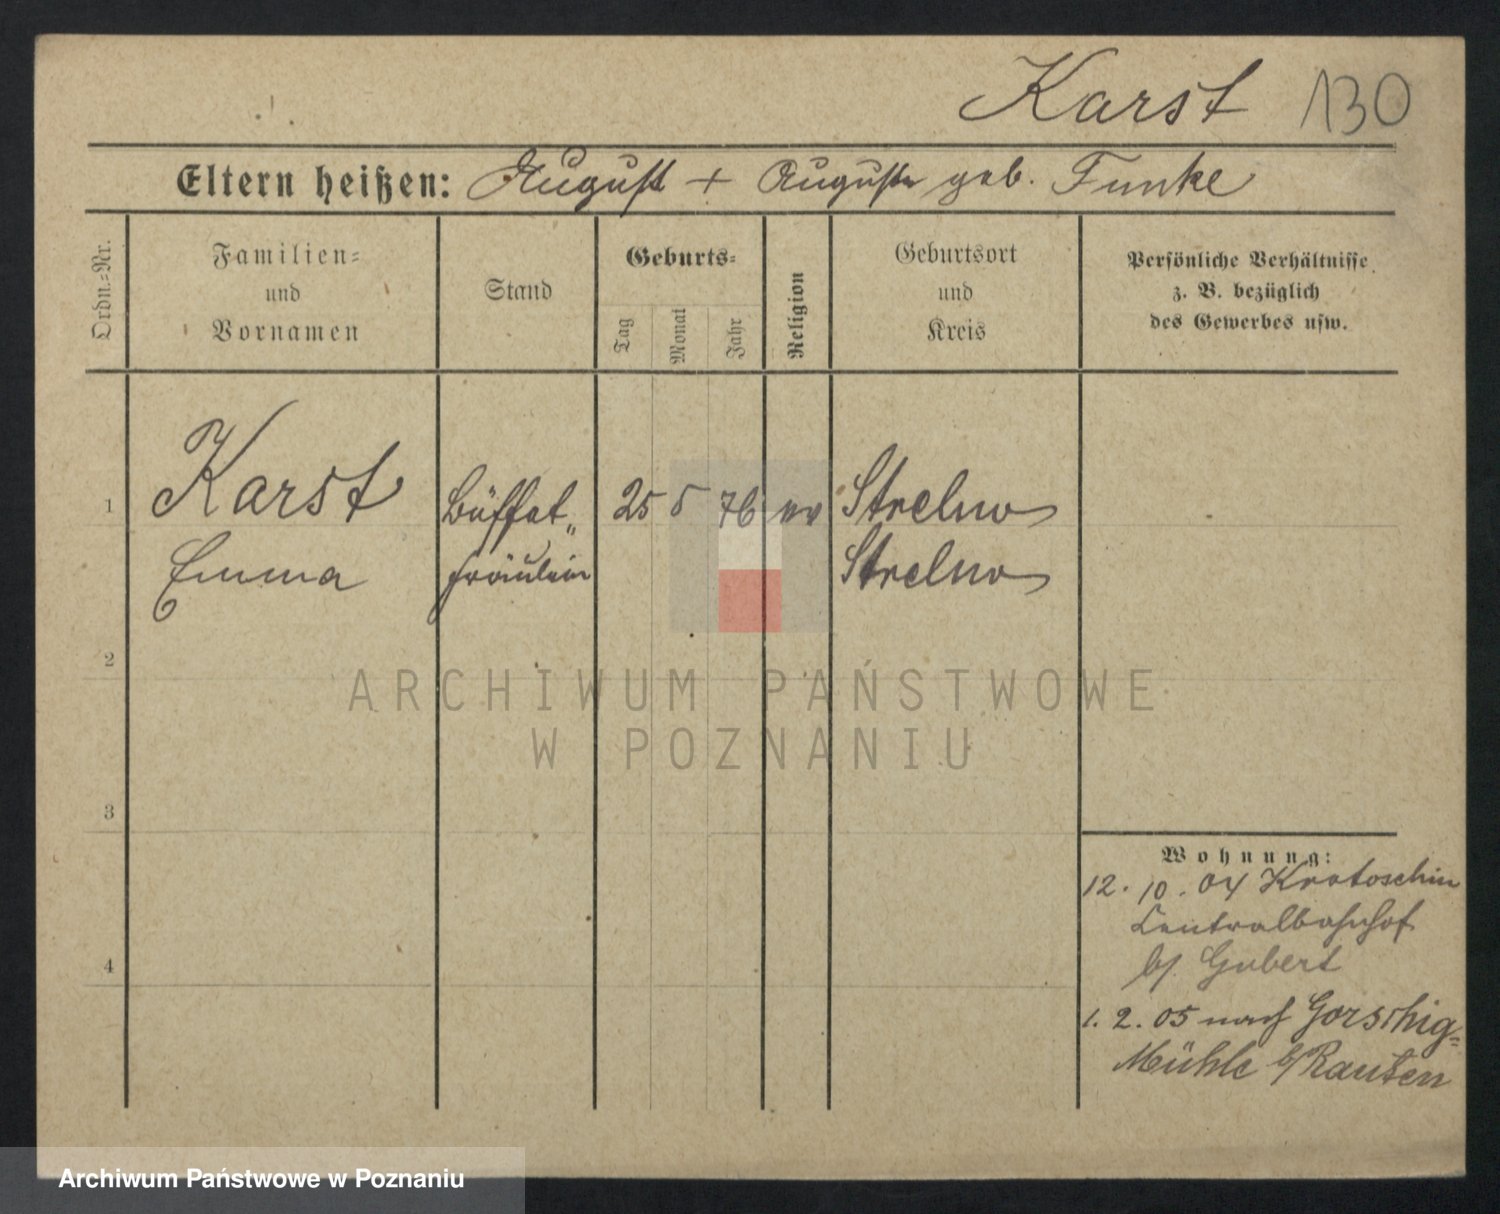 Karst 130
Eltern heißen: August + Auguste geb. Funke
Ordn.-Nr.
Familien-
und
Vornamen
Stand
Geburts-
Tag
Monat
Jahr
Religion
Geburtsort
und
Kreis
Persönliche Verhältnisse
z. B. bezüglich
des Gewerbes usw.
1 Karst Büffet- 25 5 76 ev Strelno
Emma fräulein Strelno
2
ARCHIWUM PAŃSTWOWE
W POZNANIU
3
Wohnung:
12. 10. 04 Krotoschin
Centralbahnhof
b/ Gubert
4
1. 2. 05 nach Gorschig-
Mühle b/ Rauten
Archiwum Państwowe w Poznaniu